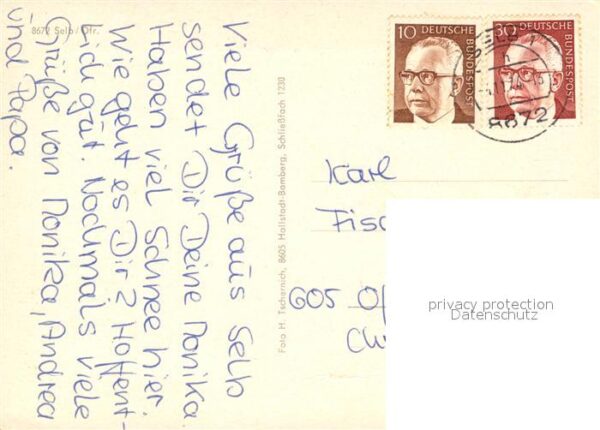 8672 Selb/Ofr.
Viele Grüße aus Selb
sendet Dir Deine Monika.
Haben viel Schnee hier.
Wie geht es Dir? Hoffent-
lich gut. Nochmals viele
Grüße von Monika, Andrea
und Papa.
Foto H. Tschernich, 8605 Hallstadt-Bamberg, Schließfach 1230
10 DEUTSCHE BUNDESPOST
30 DEUTSCHE BUNDESPOST
SELB
8672
Karl
Fisc
605 Of
privacy protection
Datenschutz